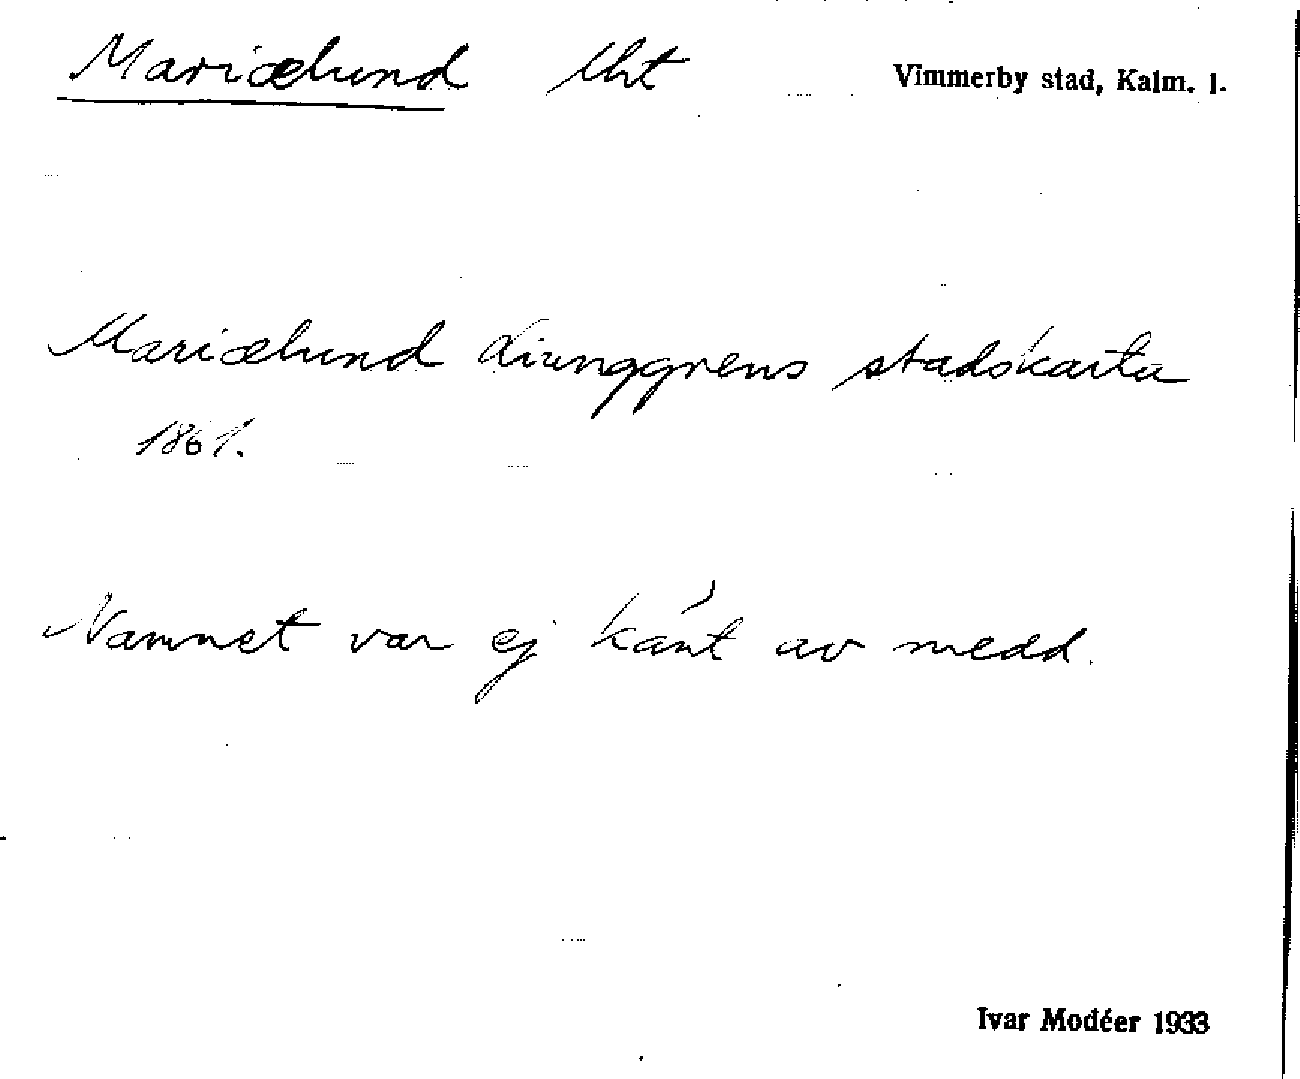 Mariælund lht Vimmerby stad, Kalm. l.
Mariælund Liunggrens stadskarta
1861.
Namnet var ej känt av medd.
Ivar Modéer 1933